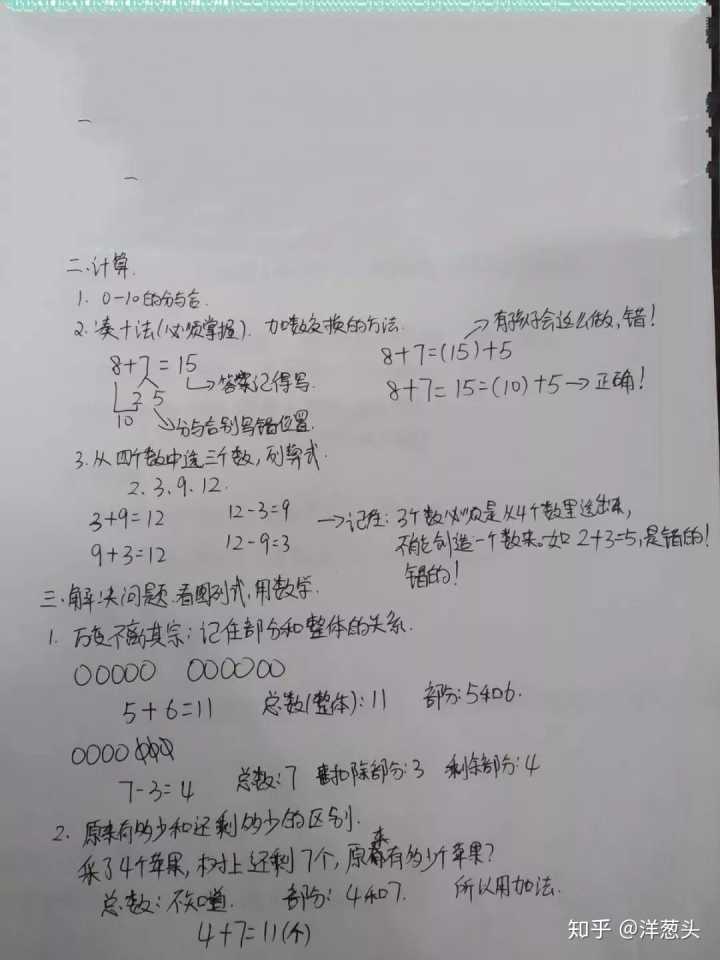 二.计算.
1. 0-10的分与合.
2.凑十法(必须掌握). 加数交换的方法.
8+7=15 →答案记得写.
2 5
10 →分与合别写错位置.
8+7=(15)+5 →有孩子会这么做,错!
8+7=15=(10)+5→正确!
3.从四个数中选三个数,列算式.
2.3.9.12.
3+9=12 12-3=9
9+3=12 12-9=3
→记住:3个数必须是从4个数里选出来,
不能创造一个数来。如2+3=5,是错的!
错的!
三.解决问题.看图列式,用数学.
1. 万变不离其宗:记住部分和整体的关系.
OOOOO OOOOOO
5+6=11 总数(整体):11 部分:5和6.
7-3=4 总数:7 扣除部分:3 剩余部分:4
2. 原来有多少和还剩多少的区别.
采了4个苹果,树上还剩7个,原来有多少个苹果?
总数:不知道. 部分:4和7. 所以用加法.
4+7=11(个)
知乎 @洋葱头